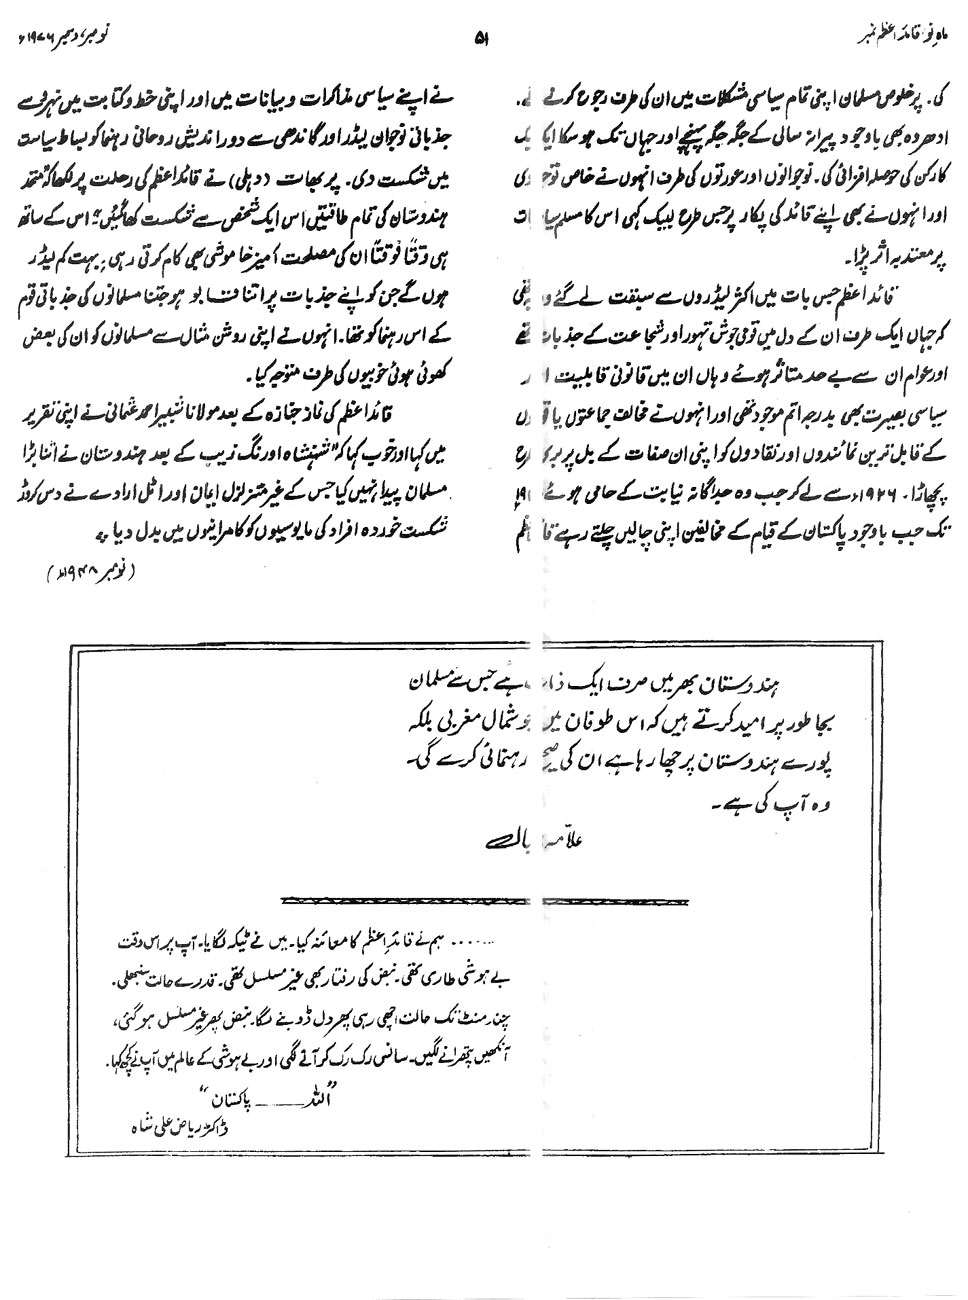 ماہِ نو۔ قائدِ اعظم نمبر
۵۱
نومبر، دسمبر ۱۹۷۶ء
کی۔ پرخلوص مسلمان اپنی تمام سیاسی مشکلات میں ان کی طرف رجوع کرنے
ادھر وہ بھی باوجود پیرانہ سالی کے جگہ جگہ پہنچے اور جہاں تک ہو سکا ایک ایک
کارکن کی حوصلہ افزائی کی۔ نوجوانوں اور عورتوں کی طرف انہوں نے خاص توجہ دی
اور انہوں نے بھی اپنے قائد کی پکار پر جس طرح لبیک کہی اس کا مسلم سیاسیات
پر معتدبہ اثر پڑا۔
قائد اعظم جس بات میں اکثر لیڈروں سے سبقت لے گئے وہ یہ تھی
کہ جہاں ایک طرف ان کے دل میں قومی جوش تہور اور شجاعت کے جذبات تھے
اور عوام ان سے بے حد متاثر ہوئے وہاں ان میں قانونی قابلیت اور
سیاسی بصیرت بھی بدرجہ اتم موجود تھی اور انہوں نے مخالف جماعتوں یا قوموں
کے قابل ترین نمائندوں اور نقادوں کو اپنی ان صفات کے بل پر بری طرح
پچھاڑا۔ ۱۹۲۶ء سے لے کر جب وہ جداگانہ نیابت کے حامی ہوئے
تک جب باوجود پاکستان کے قیام کے مخالفین اپنی چالیں چلتے رہے قائد اعظم
نے اپنے سیاسی مذاکرات و بیانات میں اور اپنی خط و کتابت میں نہرو سے
جذباتی نوجوان لیڈر اور گاندھی سے دور اندیش روحانی رہنما کو بساط سیاست
میں شکست دی۔ پربھات (دہلی) نے قائد اعظم کی رحلت پر لکھا کہ "متحد
ہندوستان کی تمام طاقتیں اس ایک شخص سے شکست کھا گئیں" اس کے ساتھ
ہی وقتاً فوقتاً ان کی مصلحت آمیز خاموشی بھی کام کرتی رہی، بہت کم لیڈر
ہوں گے جن کو اپنے جذبات پر اتنا قابو ہو جتنا مسلمانوں کی جذباتی قوم
کے اس رہنما کو تھا۔ انہوں نے اپنی روشن مثال سے مسلمانوں کو ان کی بعض
کھوئی ہوئی خوبیوں کی طرف متوجہ کیا۔
قائد اعظم کی نماز جنازہ کے بعد مولانا شبیر احمد عثمانی نے اپنی تقریر
میں کہا اور خوب کہا کہ "شہنشاہ اورنگ زیب کے بعد ہندوستان نے اتنا بڑا
مسلمان پیدا نہیں کیا جس کے غیر متزلزل ایمان اور اٹل ارادے نے دس کروڑ
شکست خوردہ افراد کی مایوسیوں کو کامرانیوں میں بدل دیا۔"
(نومبر ۱۹۴۸ء)
ہندوستان بھر میں صرف ایک ذات ہے جس سے مسلمان
بجا طور پر امید کرتے ہیں کہ اس طوفان میں جو شمال مغربی بلکہ
پورے ہندوستان پر چھا رہا ہے ان کی صحیح رہنمائی کرے گی۔
وہ آپ کی ہے۔
علامہ اقبالؒ
...... ہم نے قائدِ اعظم کا معائنہ کیا۔ میں نے ٹیکہ لگایا۔ آپ پر اس وقت
بے ہوشی طاری تھی۔ نبض کی رفتار بھی غیر مسلسل تھی۔ قدرے حالت سنبھلی۔
چند منٹ تک حالت اچھی رہی پھر دل ڈوبنے لگا۔ نبض پھر غیر مسلسل ہو گئی،
آنکھیں پتھرانے لگیں۔ سانس رک رک کر آنے لگی اور بے ہوشی کے عالم میں آپ نے کچھ کہا۔
"اللہ ــــــ پاکستان"
ڈاکٹر ریاض علی شاہ